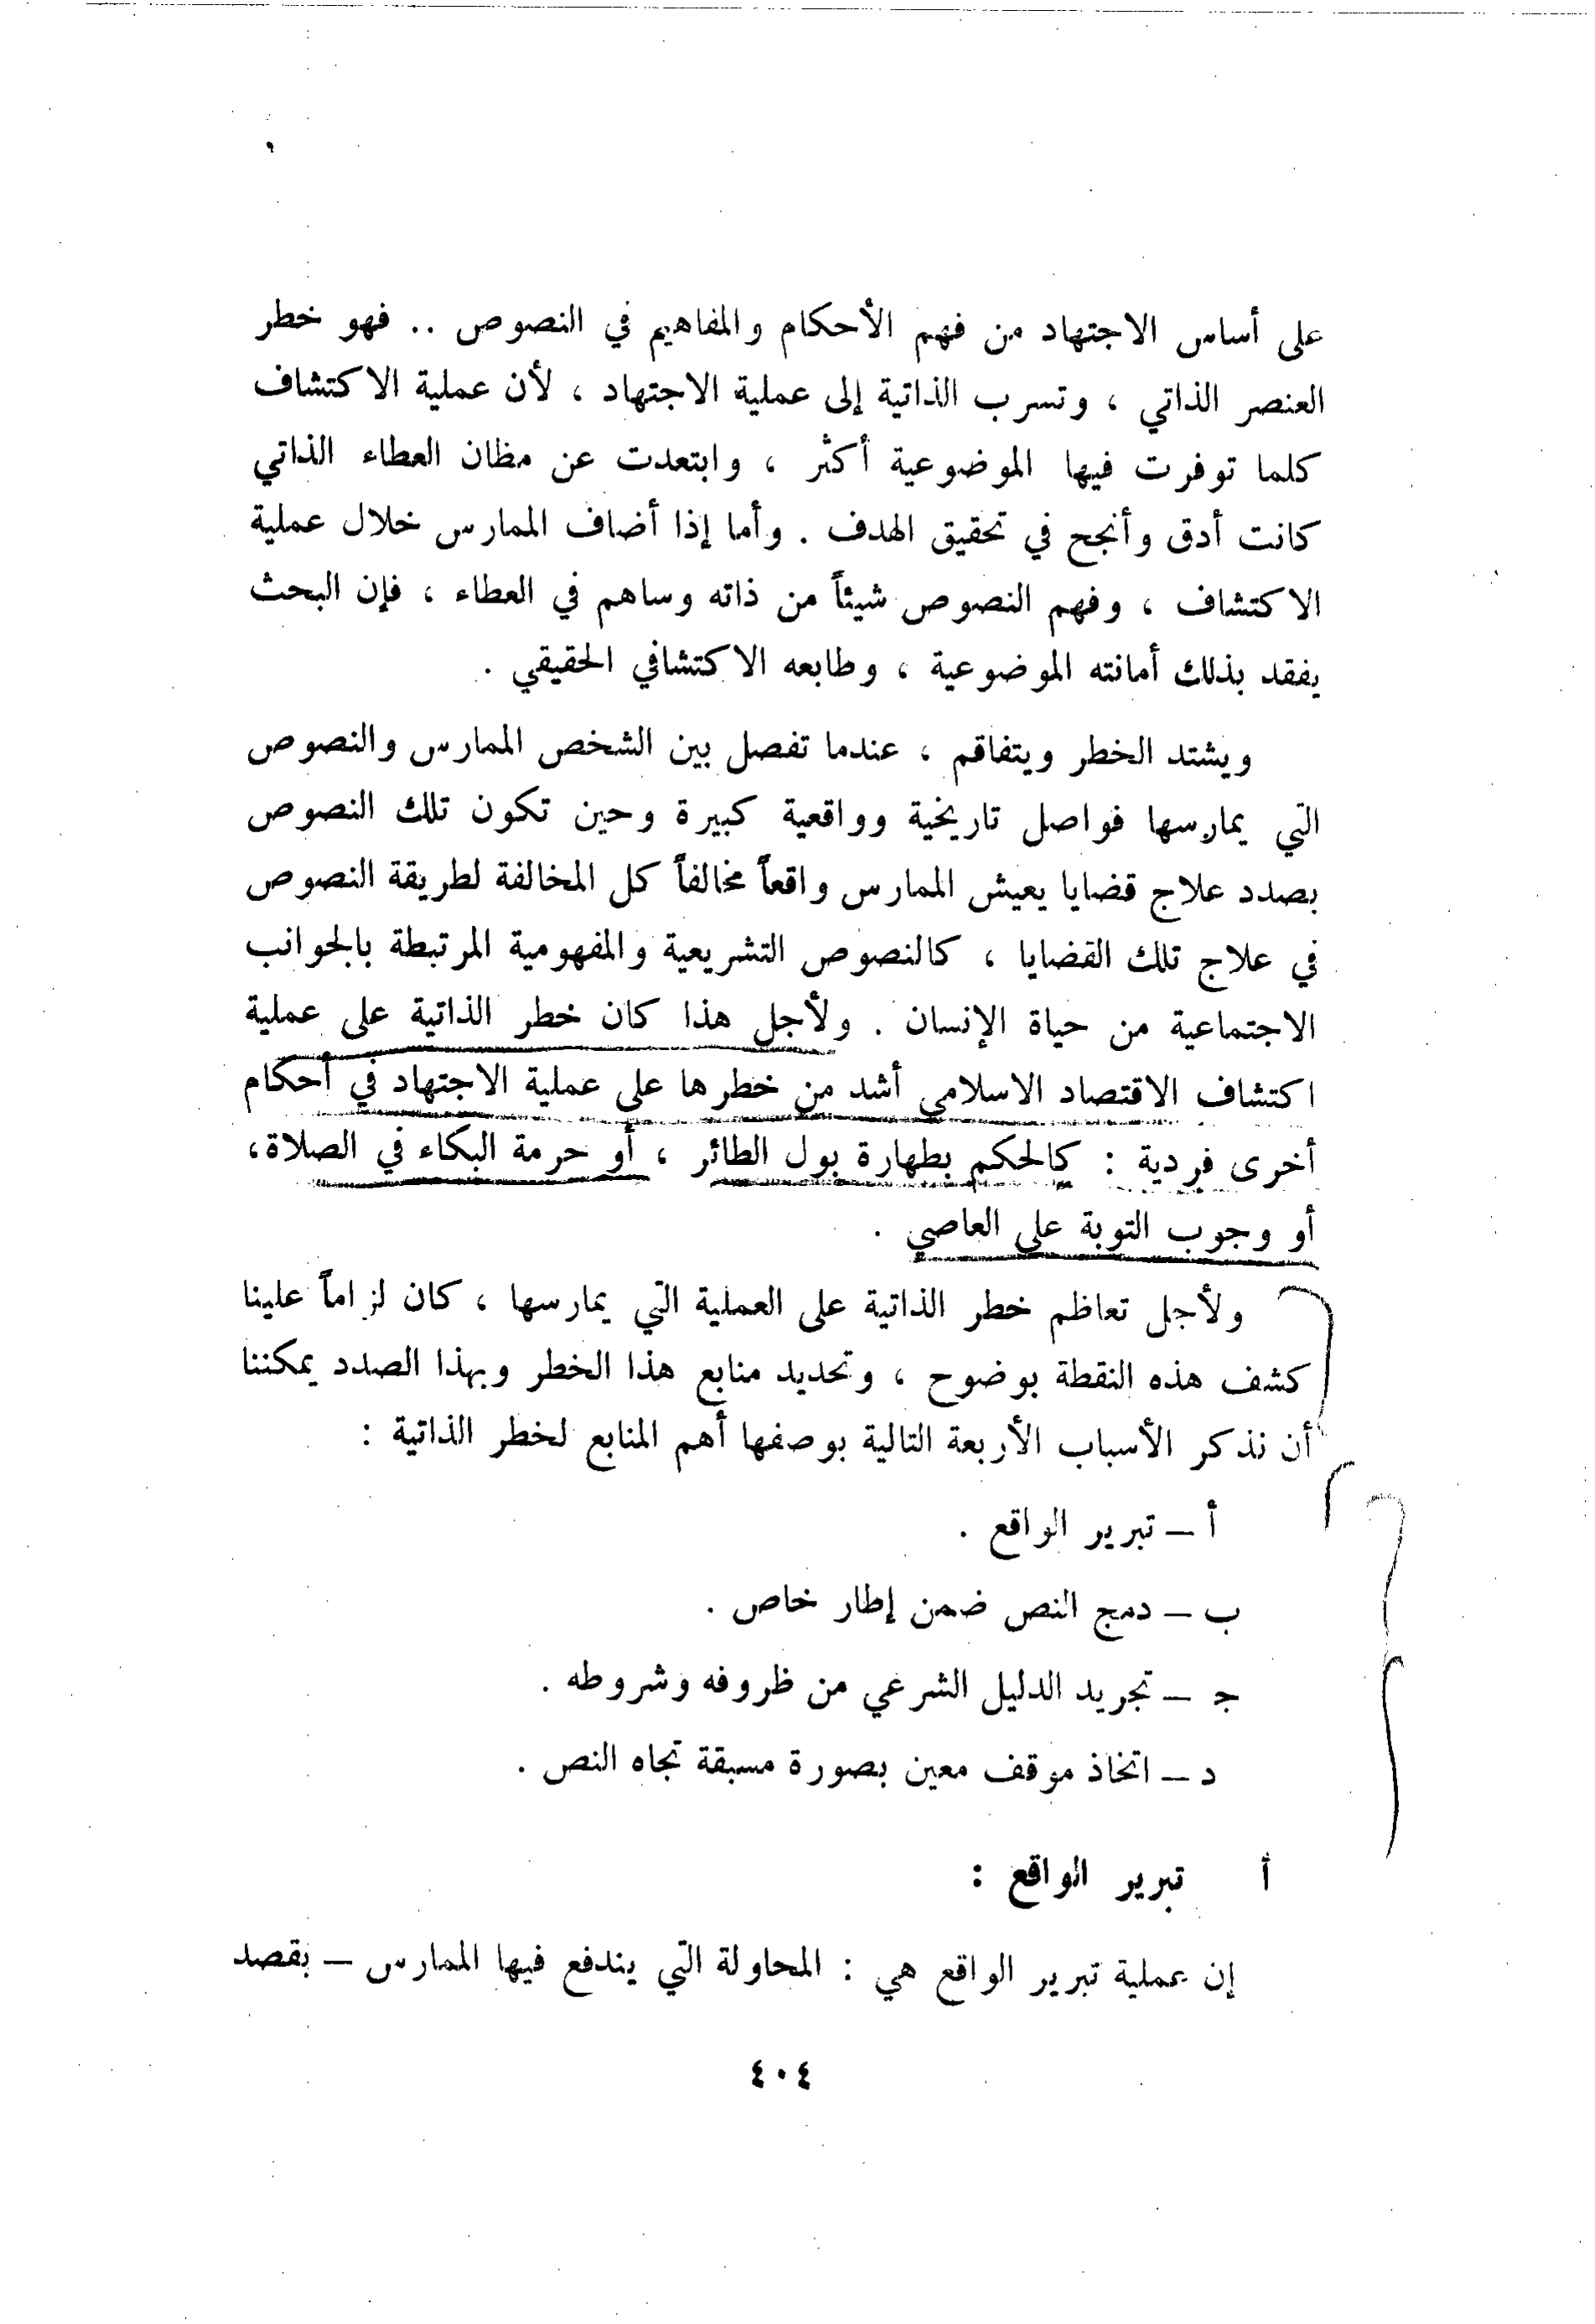 على أساس الاجتهاد من فهم الأحكام والمفاهيم في النصوص .. فهو خطر
العنصر الذاتي ، وتسرب الذاتية إلى عملية الاجتهاد ، لأن عملية الاكتشاف
كلما توفرت فيها الموضوعية أكثر ، وابتعدت عن مظان العطاء الذاتي
كانت أدق وأنجح في تحقيق الهدف . وأما إذا أضاف الممارس خلال عملية
الاكتشاف ، وفهم النصوص شيئاً من ذاته وساهم في العطاء ، فإن البحث
يفقد بذلك أمانته الموضوعية ، وطابعه الاكتشافي الحقيقي .
ويشتد الخطر ويتفاقم ، عندما تفصل بين الشخص الممارس والنصوص
التي يمارسها فواصل تاريخية وواقعية كبيرة وحين تكون تلك النصوص
بصدد علاج قضايا يعيش الممارس واقعاً مخالفاً كل المخالفة لطريقة النصوص
في علاج تلك القضايا ، كالنصوص التشريعية والمفهومية المرتبطة بالجوانب
الاجتماعية من حياة الإنسان . ولأجل هذا كان خطر الذاتية على عملية
اكتشاف الاقتصاد الاسلامي أشد من خطرها على عملية الاجتهاد في أحكام
أخرى فردية : كالحكم بطهارة بول الطائر ، أو حرمة البكاء في الصلاة،
أو وجوب التوبة على العاصي .
ولأجل تعاظم خطر الذاتية على العملية التي يمارسها ، كان لزاماً علينا
كشف هذه النقطة بوضوح ، وتحديد منابع هذا الخطر وبهذا الصدد يمكننا
أن نذكر الأسباب الأربعة التالية بوصفها أهم المنابع لخطر الذاتية :
أ – تبرير الواقع .
ب – دمج النص ضمن إطار خاص .
ج – تجريد الدليل الشرعي من ظروفه وشروطه .
د – اتخاذ موقف معين بصورة مسبقة تجاه النص .
أ تبرير الواقع :
إن عملية تبرير الواقع هي : المحاولة التي يندفع فيها الممارس – بقصد
٤٠٤